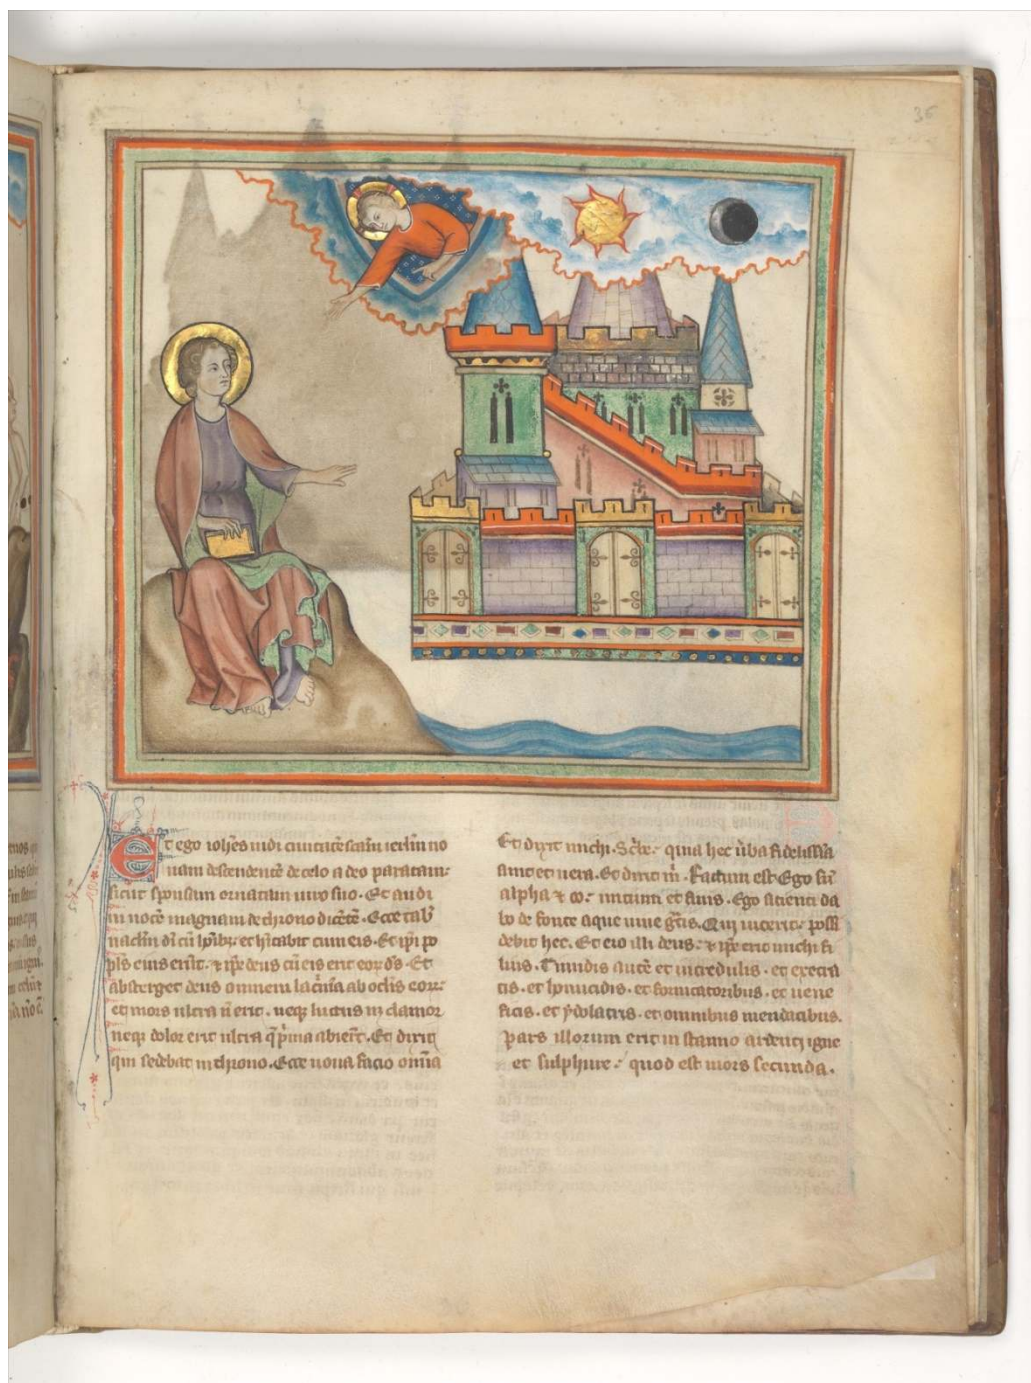 36
Et ego ioh̄es uidi ciuitatē sc̄am ierl̄m no
uam descendentē de celo a deo paratam:
sicut sponsam ornatam uiro suo. Et audi
ui uocē magnam de throno dicētē. Ecce tab̄
nacl̄m dī cū hōĩbȝ: et hītabit cum eis. Et ip̄i po
pl̄s eius erūt. ⁊ ip̄e deus cū eis erit eoꝝ d̄s. Et
absterget deus omnem lac̄mā ab oclis eoꝝ:
et mors ultra n̄ erit. neqꝫ luctus nꝫ clamor
neqꝫ dolor erit ultra q̄ p̄ma abierūt. Et dixit
qui sedebat in throno. Ecce noua facio om̄ia
Et dixit michi. Sc̄be: quia hec ūba fidelissīa
sunt et uera. Et dixit m̄. Factum est. Ego sū
alpha ⁊ ω: initiū et finis. Ego sitienti da
bo de fonte aque uiue gͣtis. Qui uicerit: possi
debit hec. Et ero illi deus: ⁊ ip̄e erit michi fi
lius. Timidis autē et incredulis. et execra
tis. et homicidis. et fornicatoribus. et uene
ficis. et ydolatris. et omnibus mendacibus.
pars illorum erit in stanno ardenti igne
et sulphure: quod est mors secunda.